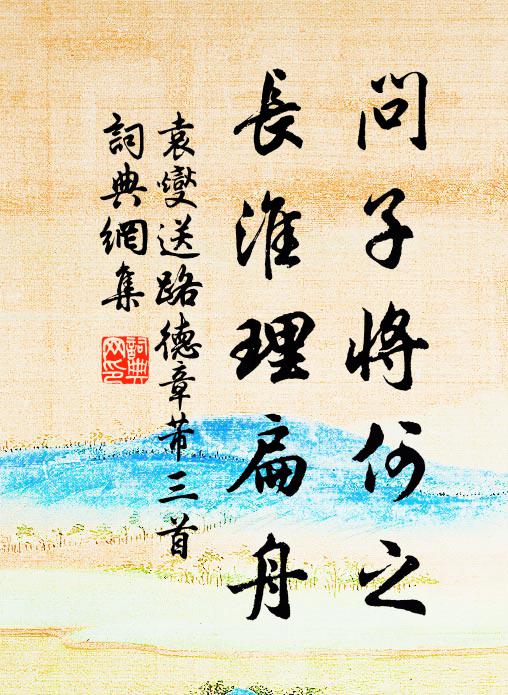 問子將何之
長淮理扁舟
袁燮送路德章芾三首
詞典網集
詞典
网印